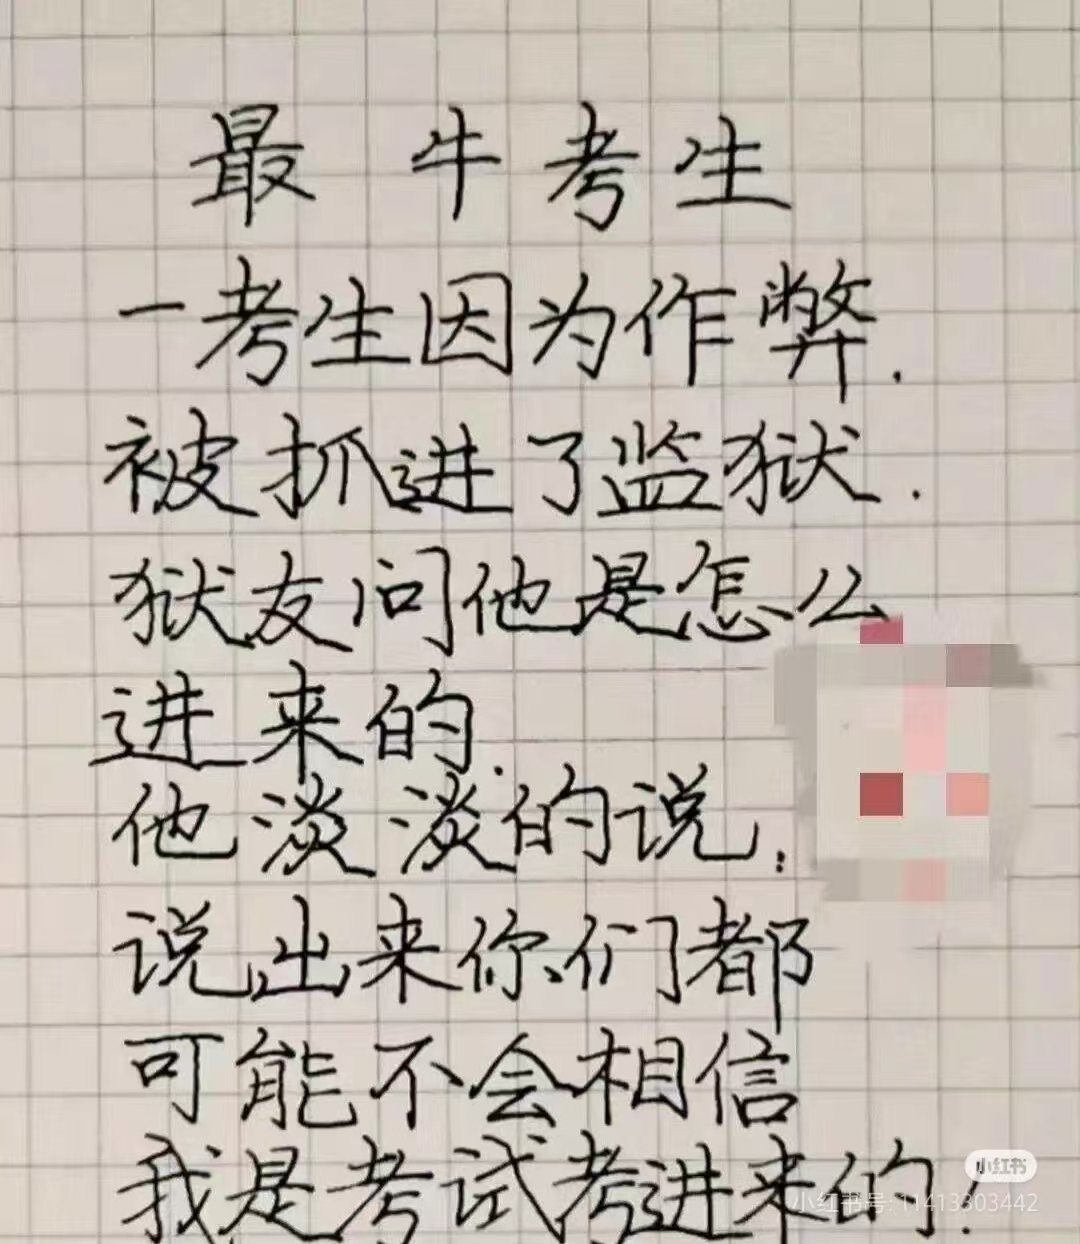 最牛考生
一考生因为作弊.
被抓进了监狱.
狱友问他是怎么
进来的.
他淡淡的说:
说出来你们都
可能不会相信
我是考试考进来的!
小红书
小红书号: 11413303442